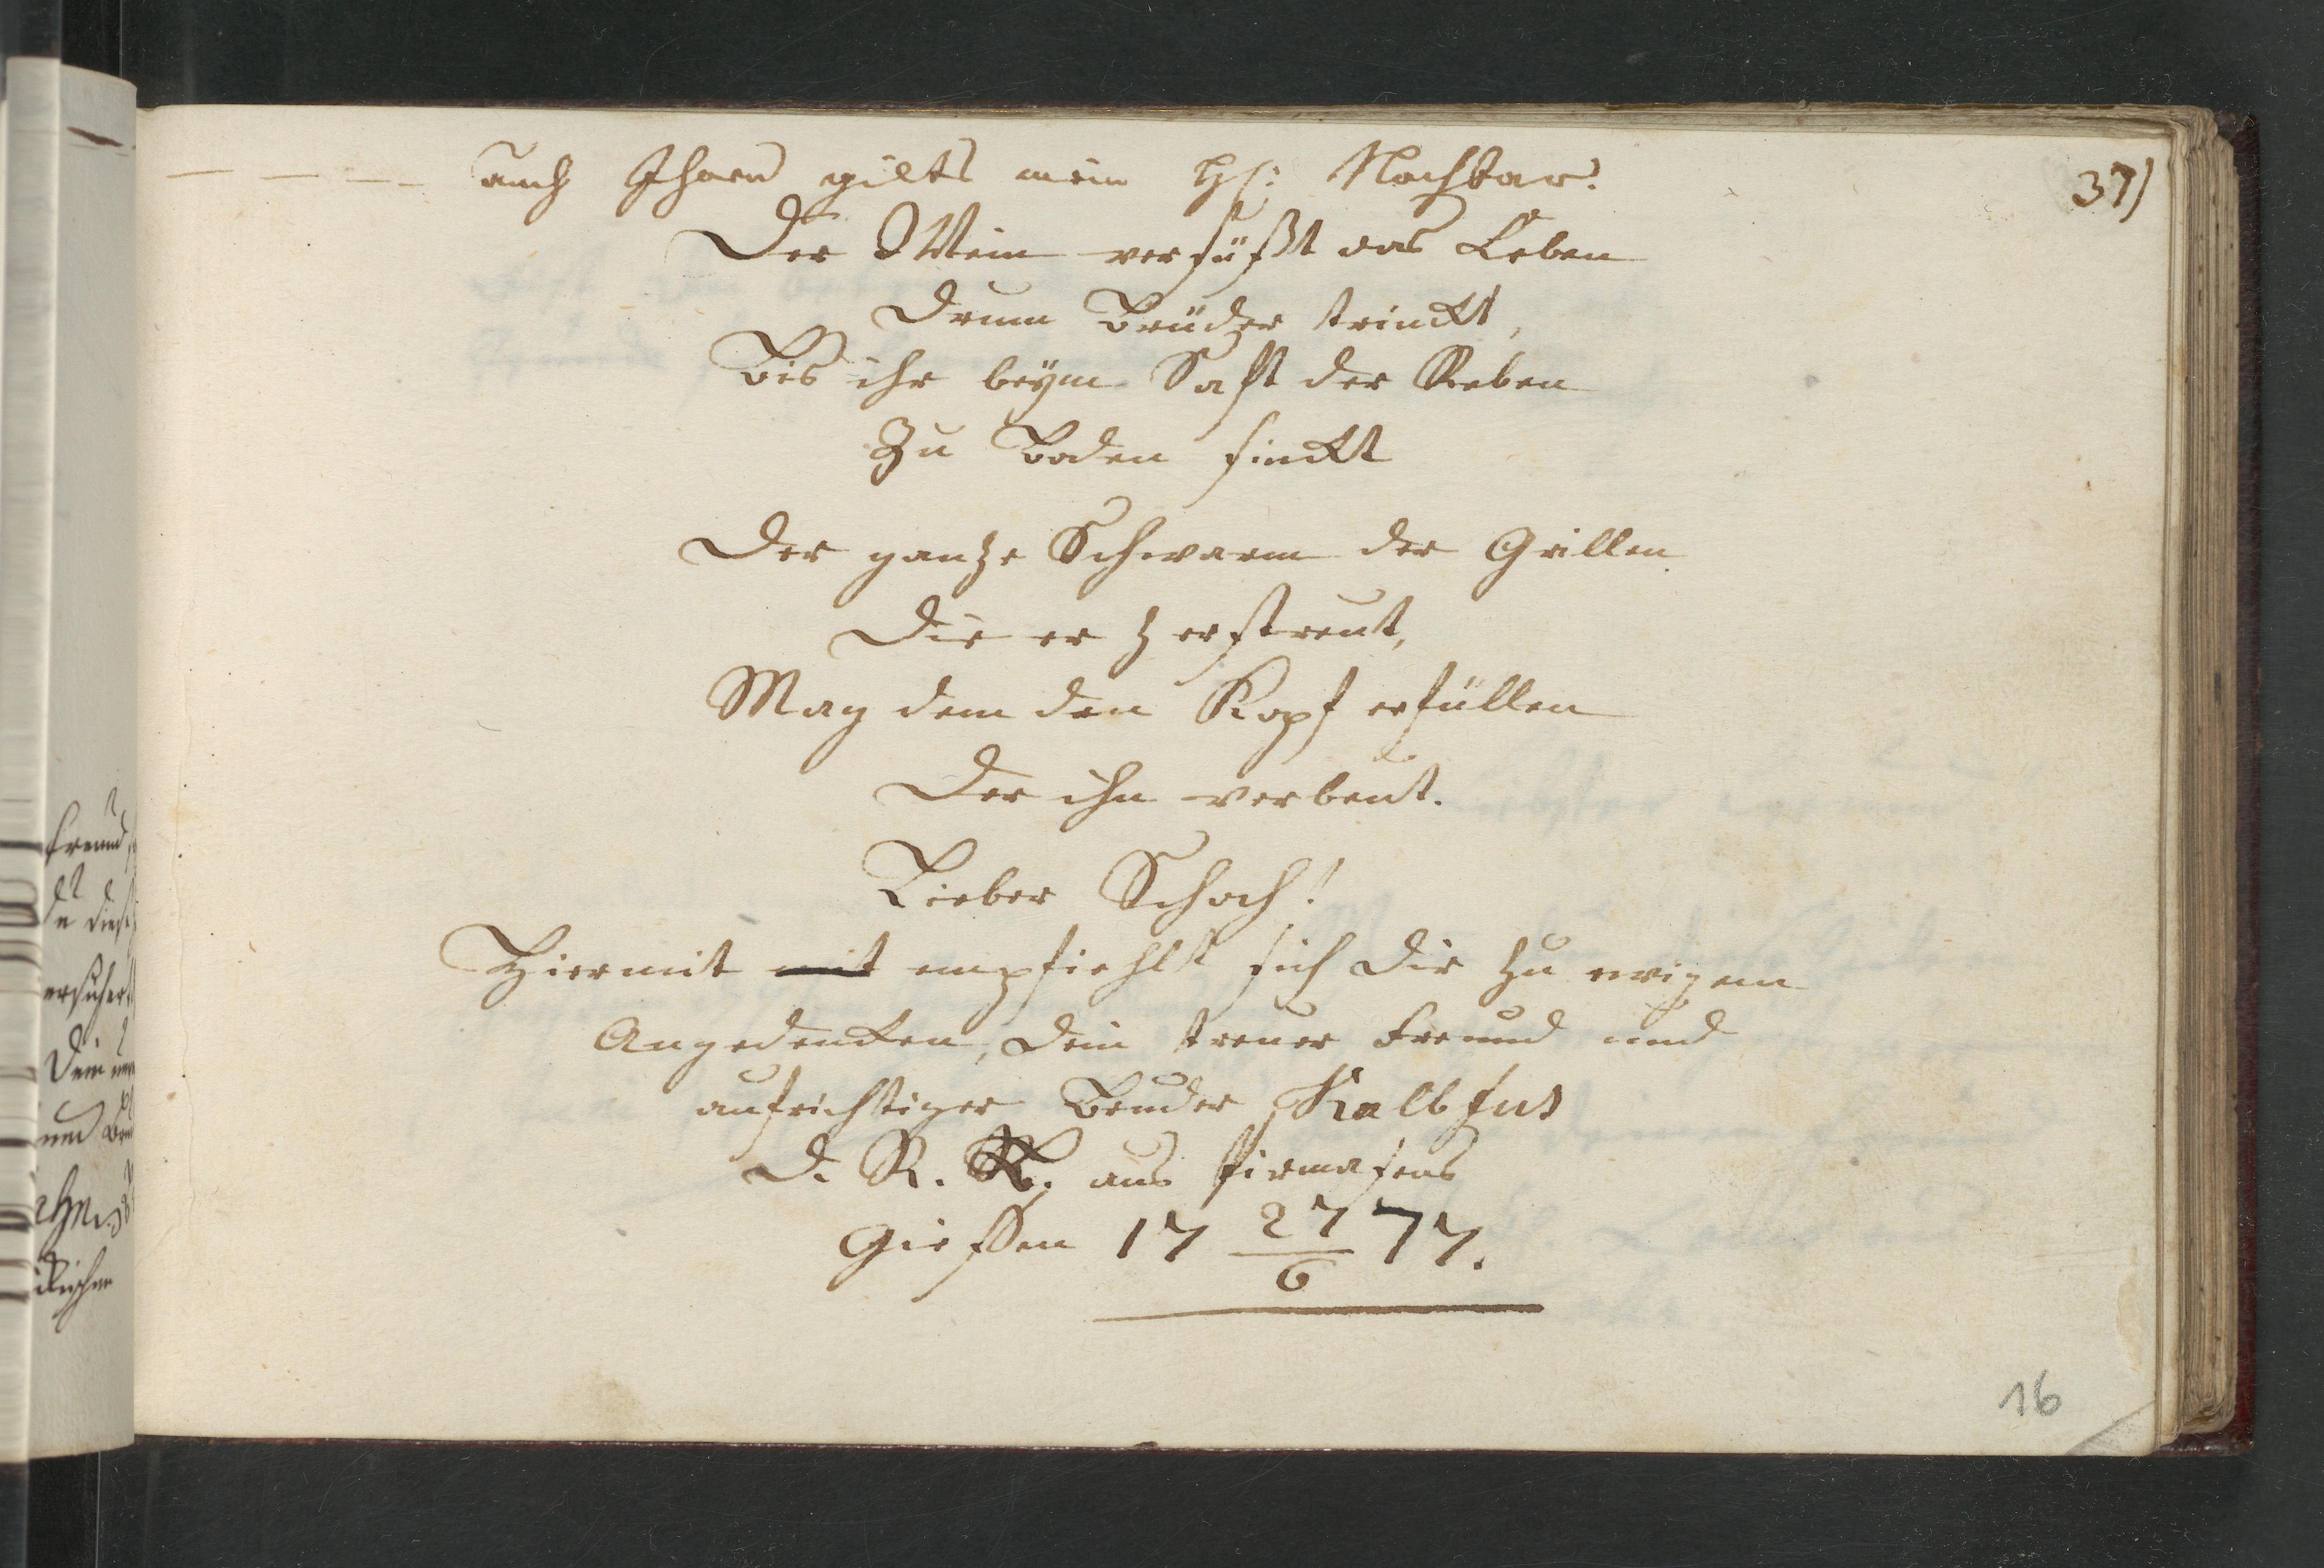 37)
— — — — auch Ihnen gilts mein Hℓ: Nachbar.
Der Wein versüßt das Leben
Drum Brüder trinckt,
Bis ihr beÿm Saft der Reben
Zu Boden sinckt
Der gantze Schwarm der Grillen
Die er zerstreut,
Mag dem den Kopf erfüllen
Der ihn verbeut.
Lieber Schoch!
Hiermit mit empfiehlt sich Dir zu ewigem
Angedencken, Dein treuer Freund und
aufrichtiger Bruder Kalbfus
D. R. R. aus Pirmasens
Giessen 17 27/6 77.
16